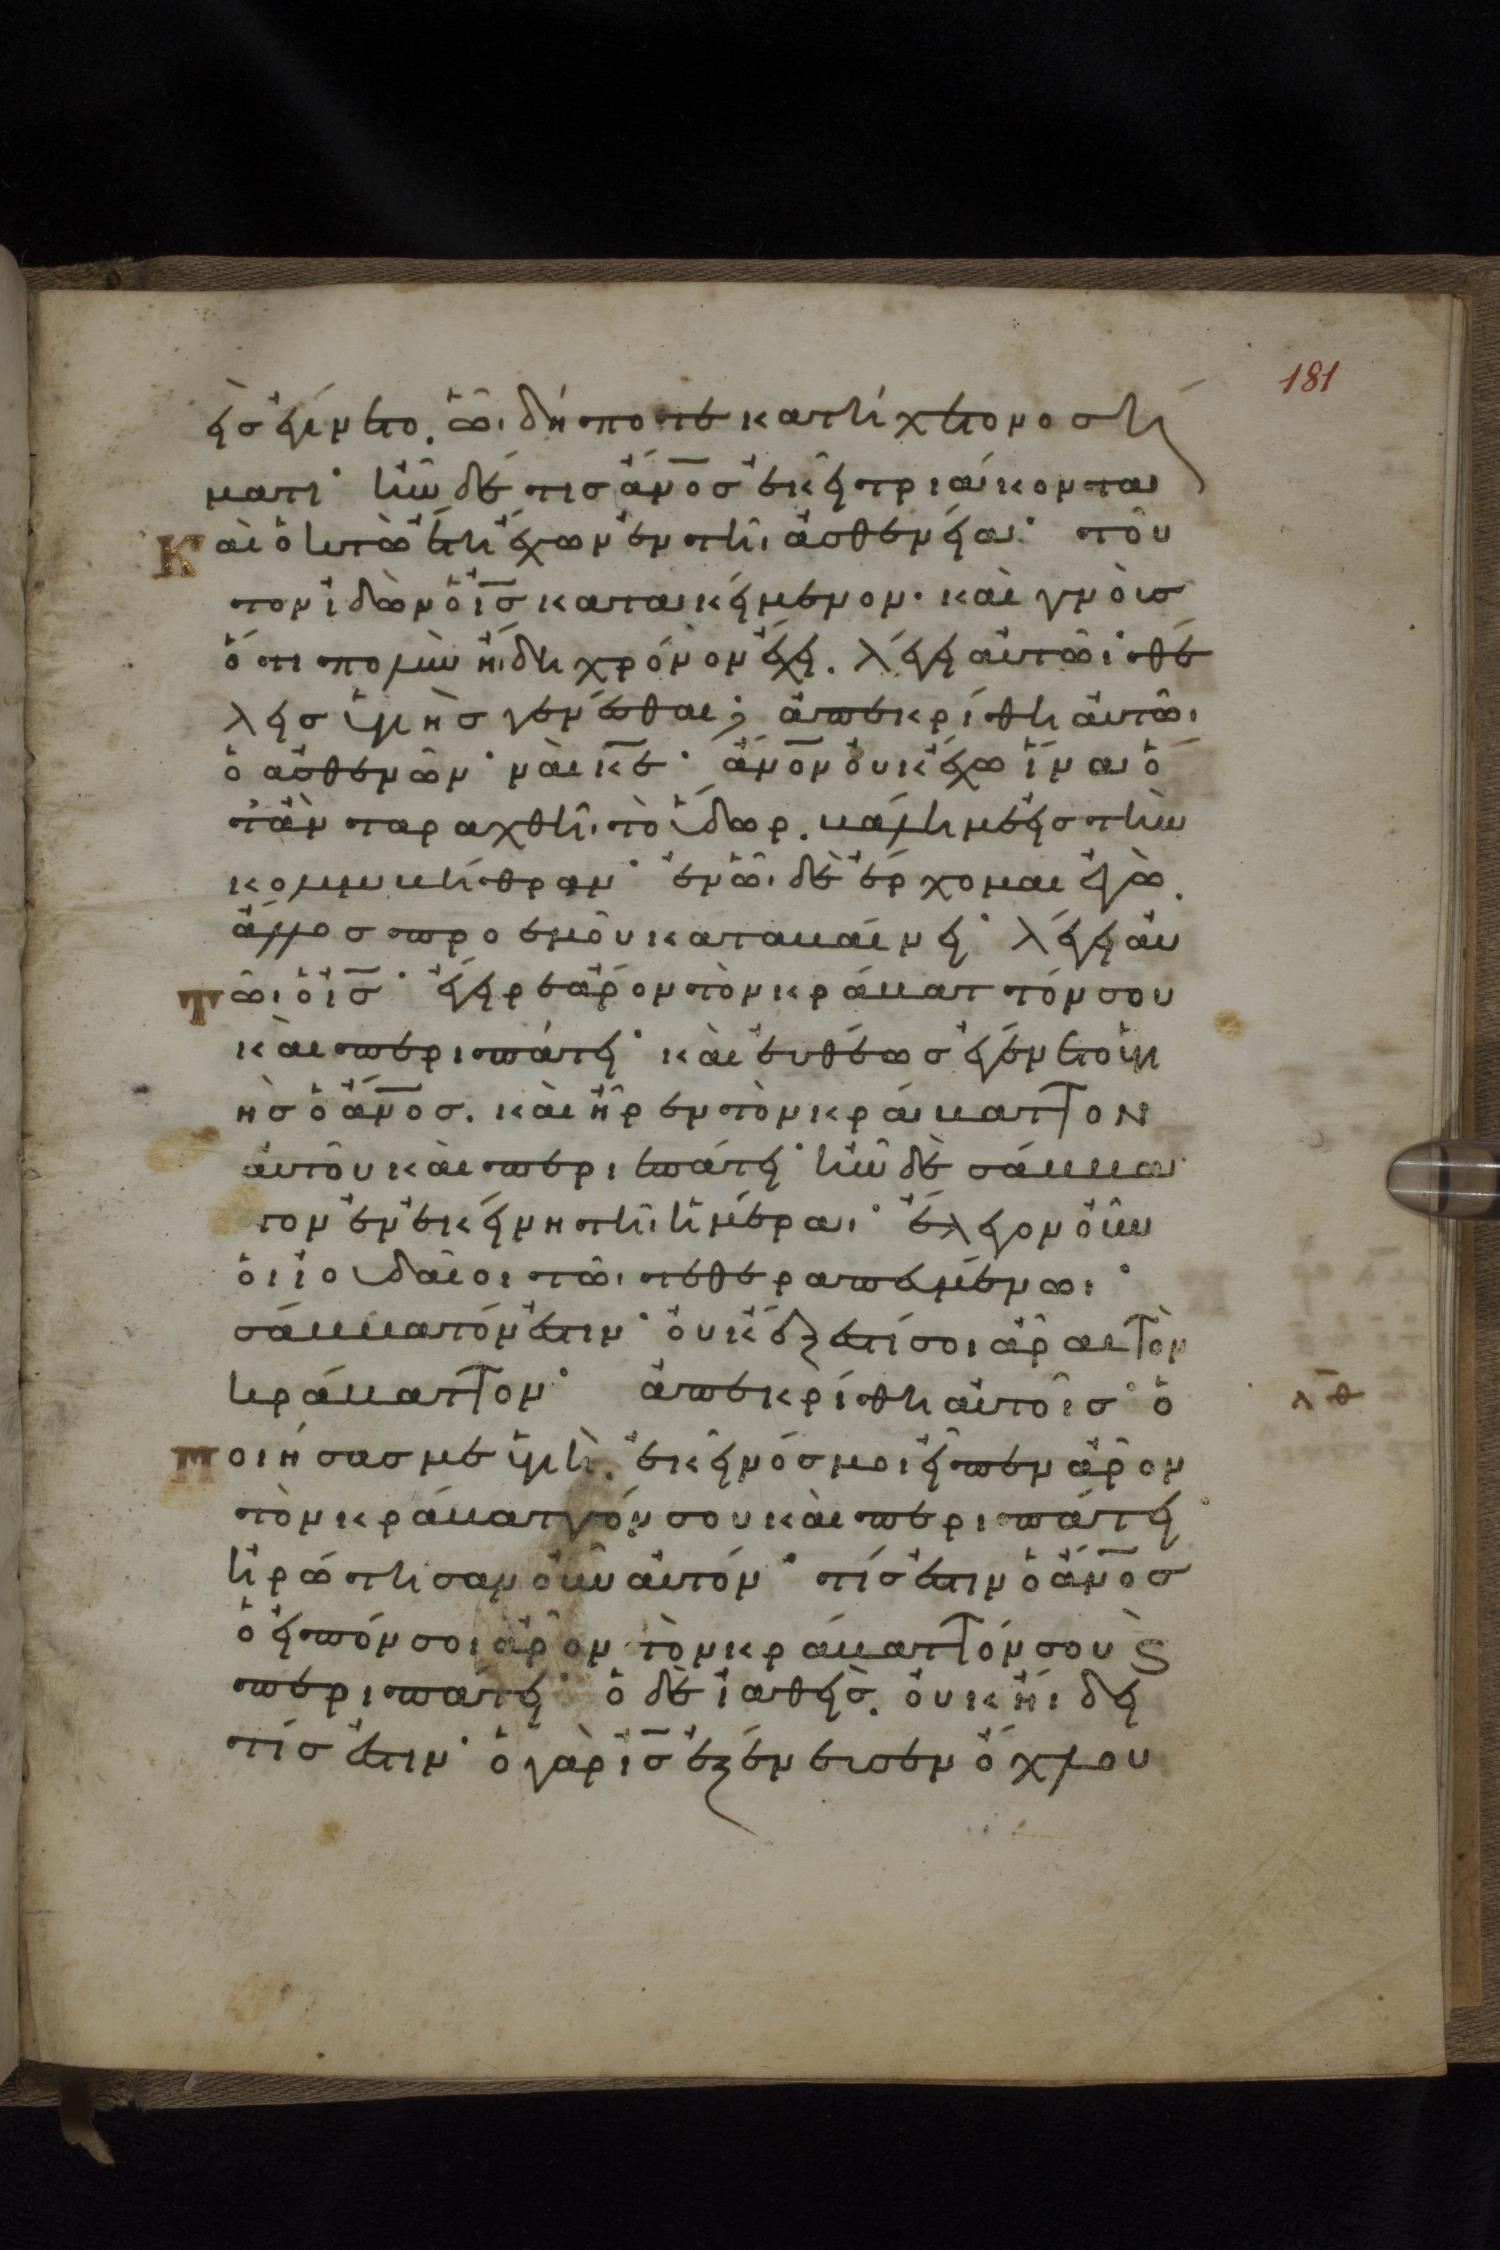 181
εὶσ ἐγίνετο. ὧι δήποτε κατήχετο νοσή
ματι· ἦν δέ τισ ἄν̅οσ ἐκεῖ τριάκοντα
Καὶ ὀκτὼ ἔτη ἔχων ἐν τῆι ἀσθενείαι· τοῦ
τον ἰδὼν ὁ ι̅σ κατακείμενον· καὶ γνοὺσ
ὅτι πολὺν ἤδη χρόνον ἔχει. λέγει αὐτῶι· θέ
λεισ ὑγιὴσ γενέσθαι; ἀπεκρίθη αὐτῶι
ὁ ἀσθενῶν· ναὶ κ̅ε· ἄν̅ον οὐκ ἔχω ἵνα ὅ
τὰν ταραχθῆι τὸ ὕδωρ. βάλη με εἰσ τὴν
κολυμβήθραν· ἐν ὧι δὲ ἔρχομαι ἐγὼ.
ἄλλοσ προ ἐμοῦ καταβαίνει· λέγει αὐ
Τῶι ὁ ι̅σ· ἔγειρε ἆρον τὸν κράβαττόν σου
καὶ περιπάτει· καὶ εὐθέωσ ἐγένετο ὑγι
ὴσ ὁ ἄν̅οσ. καὶ ἦρεν τὸν κράβαττον
αὐτοῦ καὶ περιεπάτει· ἦν δὲ σάββα
τον ἐν ἐκείνη τῆι ἡμέραι· ἔλεγον οὖν
οἱ ἰουδαῖοι τῶι τεθεραπευμένωι·
σάββατόν ἐστιν· οὐκ ἔξεστί σοι ἆραι τὸν
κράβαττον· ἀπεκρίθη αὐτοῖσ· ὁ
λ̅θ
Ποιήσασ με ὑγιῆ. ἐκεῖνόσ μοι εἶπεν ἆρον
τὸν κράβαττόν σου καὶ περιπάτει·
ἠρώτησαν οὖν αὐτόν· τίσ ἐστιν ὁ ἄν̅οσ
ὁ εἰπόν σοι ἆρον τὸν κράβαττόν σου ϗ
περιπάτει· ὁ δὲ ἰαθεὶσ. οὐκ ἤιδει
τίσ ἐστιν· ὁ γὰρ ι̅σ ἐξένευσεν ὄχλου